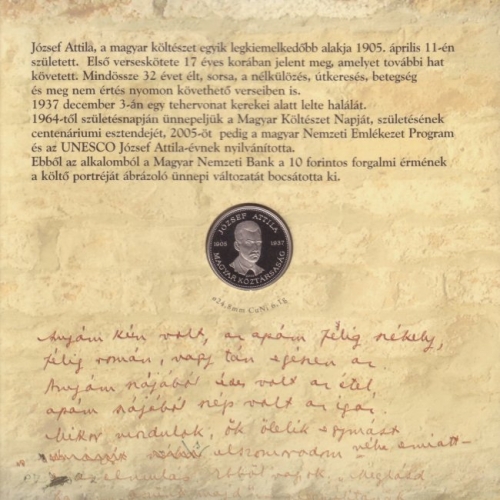 József Attila, a magyar költészet egyik legkiemelkedőbb alakja 1905. április 11-én
született. Első verseskötete 17 éves korában jelent meg, amelyet további hat
követett. Mindössze 32 évet élt, sorsa, a nélkülözés, útkeresés, betegség
és meg nem értés nyomon követhető verseiben is.
1937 december 3-án egy tehervonat kerekei alatt lelte halálát.
1964-től születésnapján ünnepeljük a Magyar Költészet Napját, születésének
centenáriumi esztendejét, 2005-öt pedig a magyar Nemzeti Emlékezet Program
és az UNESCO József Attila-évnek nyilvánította.
Ebből az alkalomból a Magyar Nemzeti Bank a 10 forintos forgalmi érmének
a költő portréját ábrázoló ünnepi változatát bocsátotta ki.
JÓZSEF ATTILA
1905 1937
MAGYAR KÖZTÁRSASÁG
ø24,8mm CuNi 6,1g
Anyám kún volt, az apám félig székely,
félig román, vagy tán egészen az.
Anyám szájából édes volt az étel,
apám szájából szép volt az igaz.
Mikor mozdulok, ők ölelik egymást
elszomorodom néha emiatt -
ez az elmulás. Ebből vagyok. "Meglásd